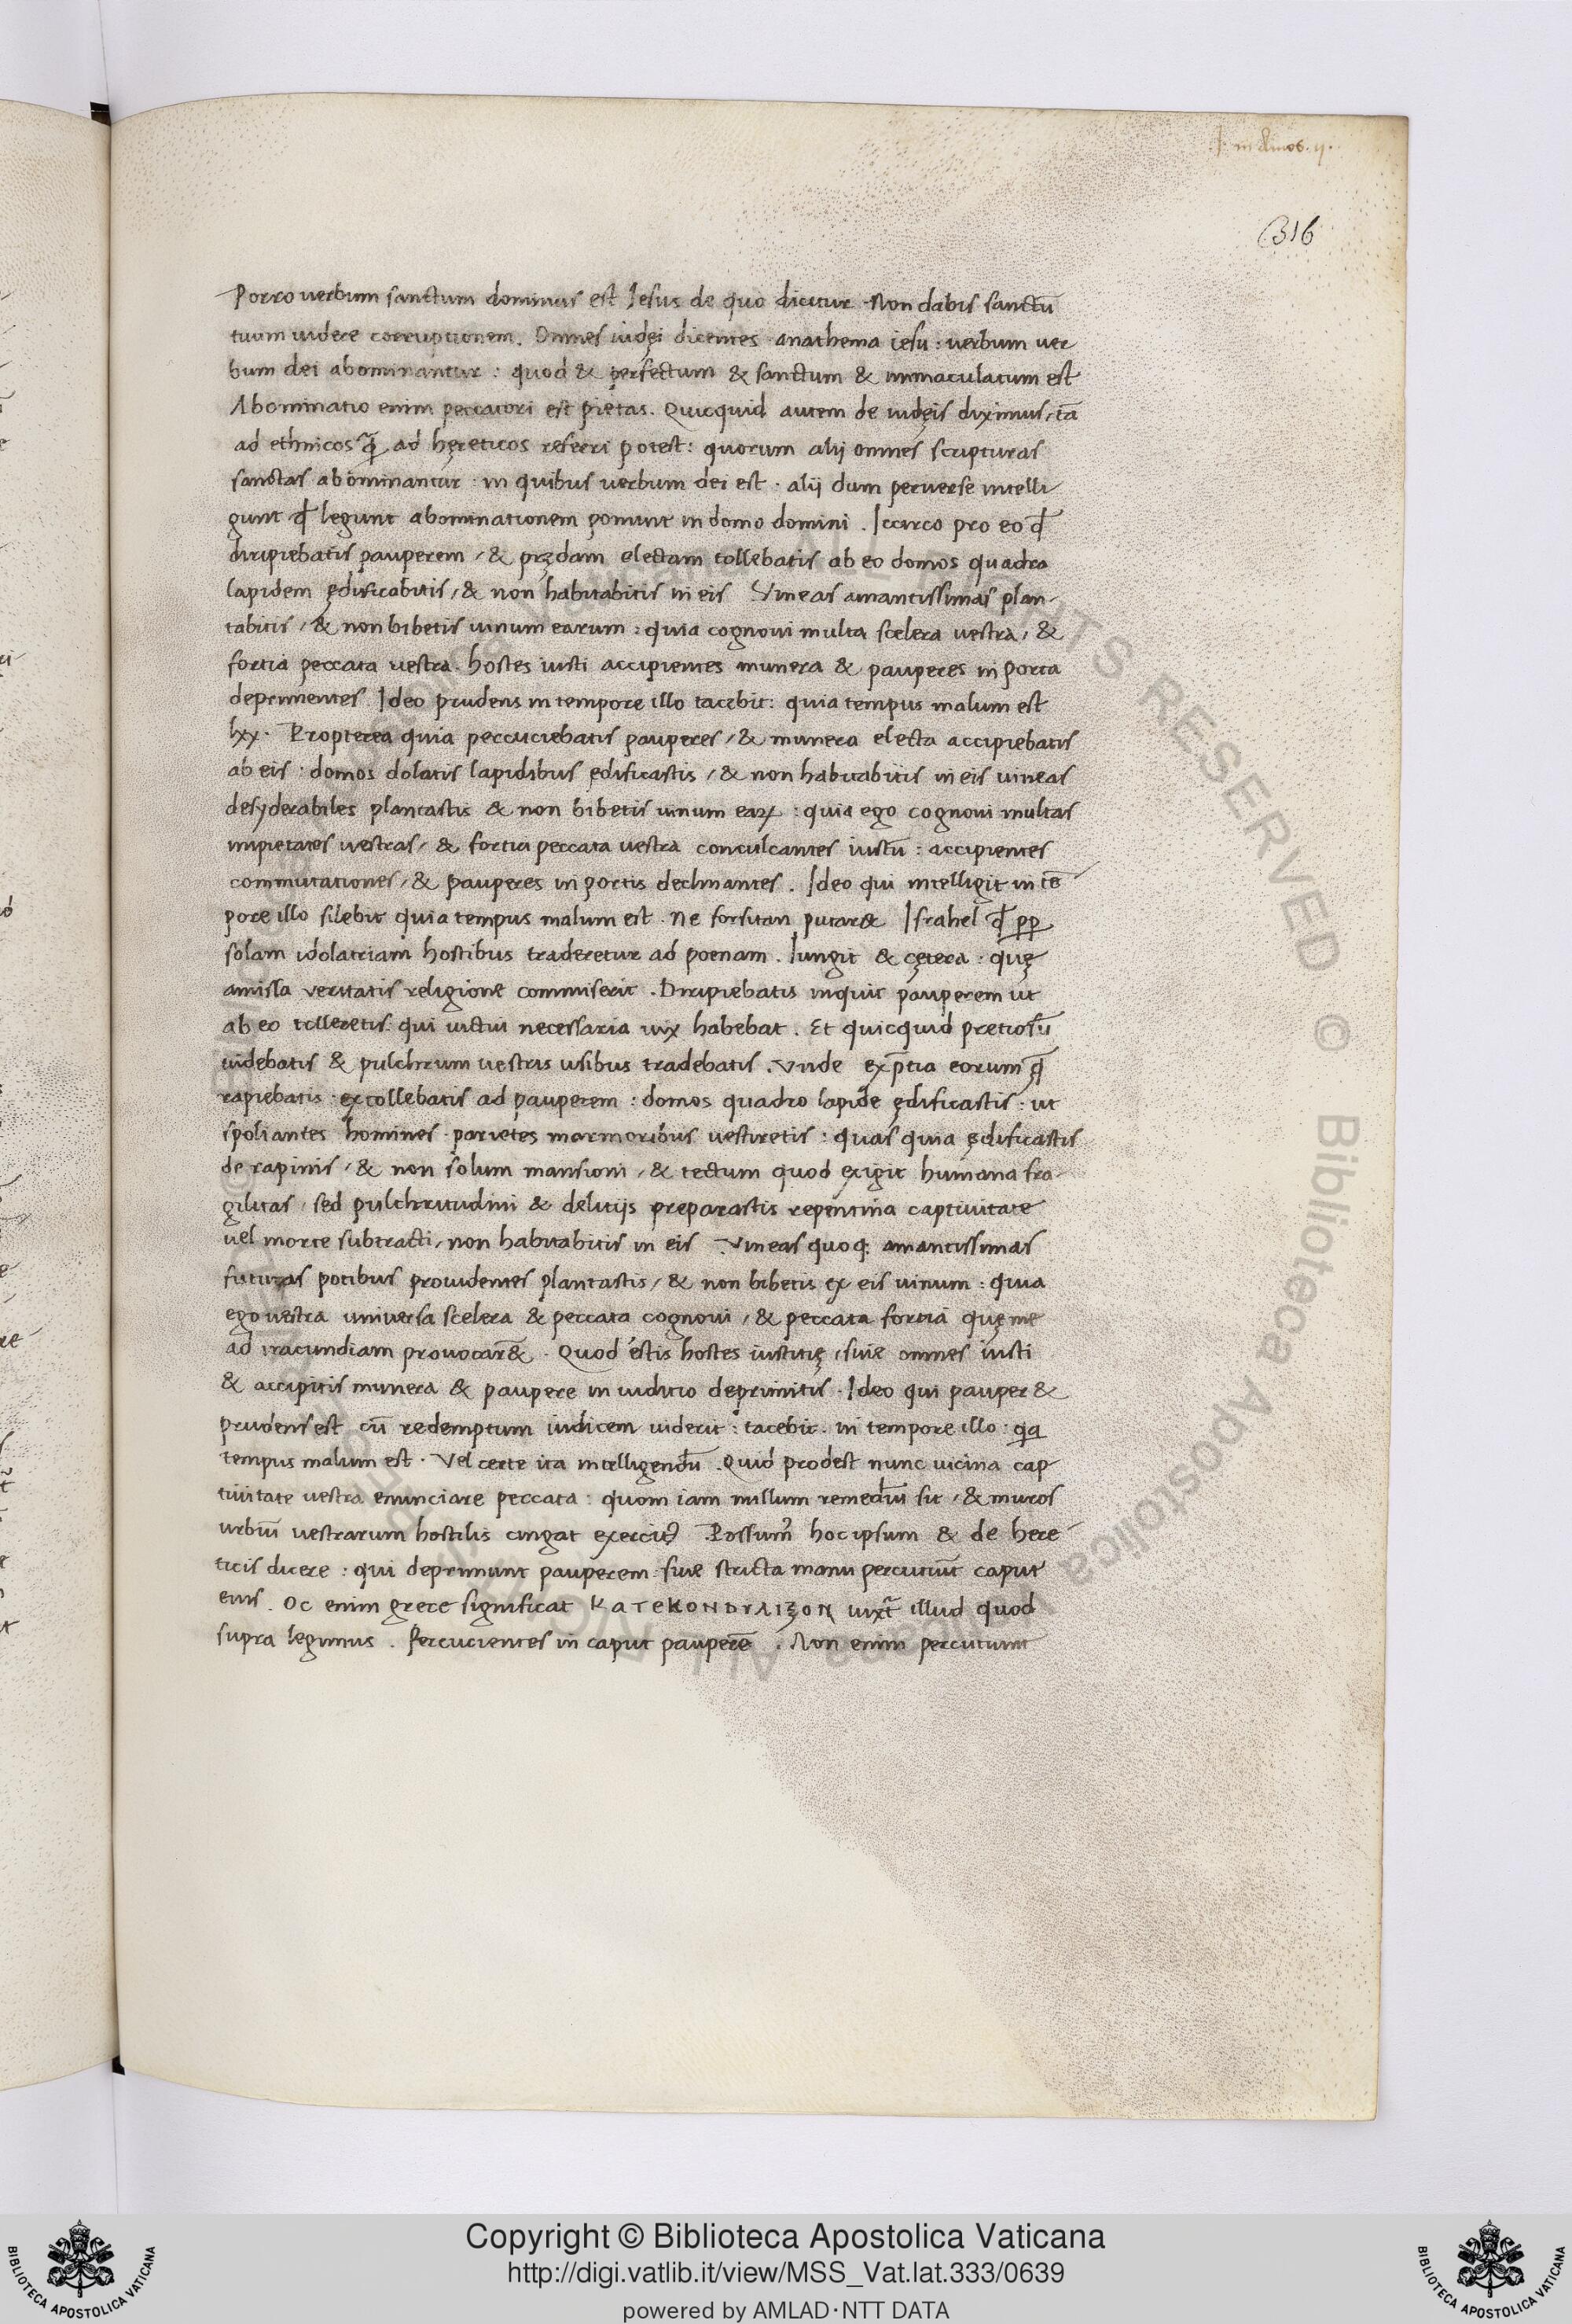 I. in Amos. ij.
316
Porro uerbum sanctum dominus est Iesus de quo dicitur. Non dabis sanctū
tuum uidere corruptionem. Omnes iudęi dicentes anathema iesu: uerbum uer
bum dei abominantur: quod & perfectum & sanctum & immaculatum est
Abominatio enim peccatori est pietas. Quicquid autem de iudęis diximus, tā
ad ethnicos ꝗ̃ ad hęreticos referri potest: quorum alij omnes scripturas
sanctas abominantur in quibus uerbum dei est. alij dum peruerse intelli
gunt ꝙ legunt abominationem ponunt in domo domini. Iccirco pro eo ꝙ
diripiebatis pauperem, & prędam electam tollebatis ab eo domos quadro
lapidem ędificabitis, & non habitabitis in eis Vineas amantissimas plan-
tabitis, & non bibetis uinum earum: quia cognoui multa scelera uestra, &
fortia peccata uestra. hostes iusti accipientes munera & pauperes in porta
deprimentes Ideo prudens in tempore illo tacebit: quia tempus malum est
lxx. Propterea quia percuciebatis pauperes, & munera electa accipiebatis
ab eis: domos dolatis lapidibus ędificastis, & non habitabitis in eis uineas
desyderabiles plantastis & non bibetis uinum eaꝝ: quia ego cognoui multas
impietates uestras, & fortia peccata uestra conculcantes iustū: accipientes
commutationes, & pauperes in portis declinantes. Ideo qui intelligit in tē
pore illo silebit quia tempus malum est. Ne forsitan putar& Israhel ꝙ ꝓp
solam idolatriam hostibus traderetur ad poenam. Iungit & cętera: quę
amissa veritatis religione commiserit. Diripiebatis inquit pauperem ut
ab eo tolleretis: qui uictui necessaria uix habebat. Et quicquid pretiosū
uidebatis & pulchrum uestris usibus tradebatis. Vnde exp̄tia eorum ꝗ̄
rapiebatis: extollebatis ad pauperem: domos quadro lapide ędificastis: ut
spoliantes homines parietes marmoribus uestiretis: quas quia ędificastis
de rapinis, & non solum mansioni, & tectum quod exigit humana fra-
gilitas, sed pulchritudini & delitijs preparastis repentina captiuitate
uel morte subtracti, non habitabitis in eis Vineas quoq; amantissimas
futuras potibus prouidentes plantastis, & non bibetis ex eis uinum: quia
ego uestra uniuersa scelera & peccata cognoui, & peccata fortia quę me
ad iracundiam prouocar&. Quod estis hostes iustitię, siue omnes iusti
& accipitis munera & paupere in iuditio deprimitis. Ideo qui pauper &
prudens est cū redemptum iudicem uiderit: tacebit in tempore illo: qa
tempus malum est. Vel certe ita intelligendū. Quid prodest nunc uicina cap
tiuitate uestra enunciare peccata: quom iam nullum remediū sit, & muros
urbiū uestrarum hostilis cingat exercitꝰ Possumꝰ hoc ipsum & de here
ticis dicere: qui deprimunt pauperem siue stricta manu percutiūt caput
eius. Oc enim grece significat KATEKONDYΛIZON iuxt̄ illud quod
supra legimus. Percucientes in caput pauperē. Non enim percutiunt
Copyright © Biblioteca Apostolica Vaticana
http://digi.vatlib.it/view/MSS_Vat.lat.333/0639
powered by AMLAD·NTT DATA